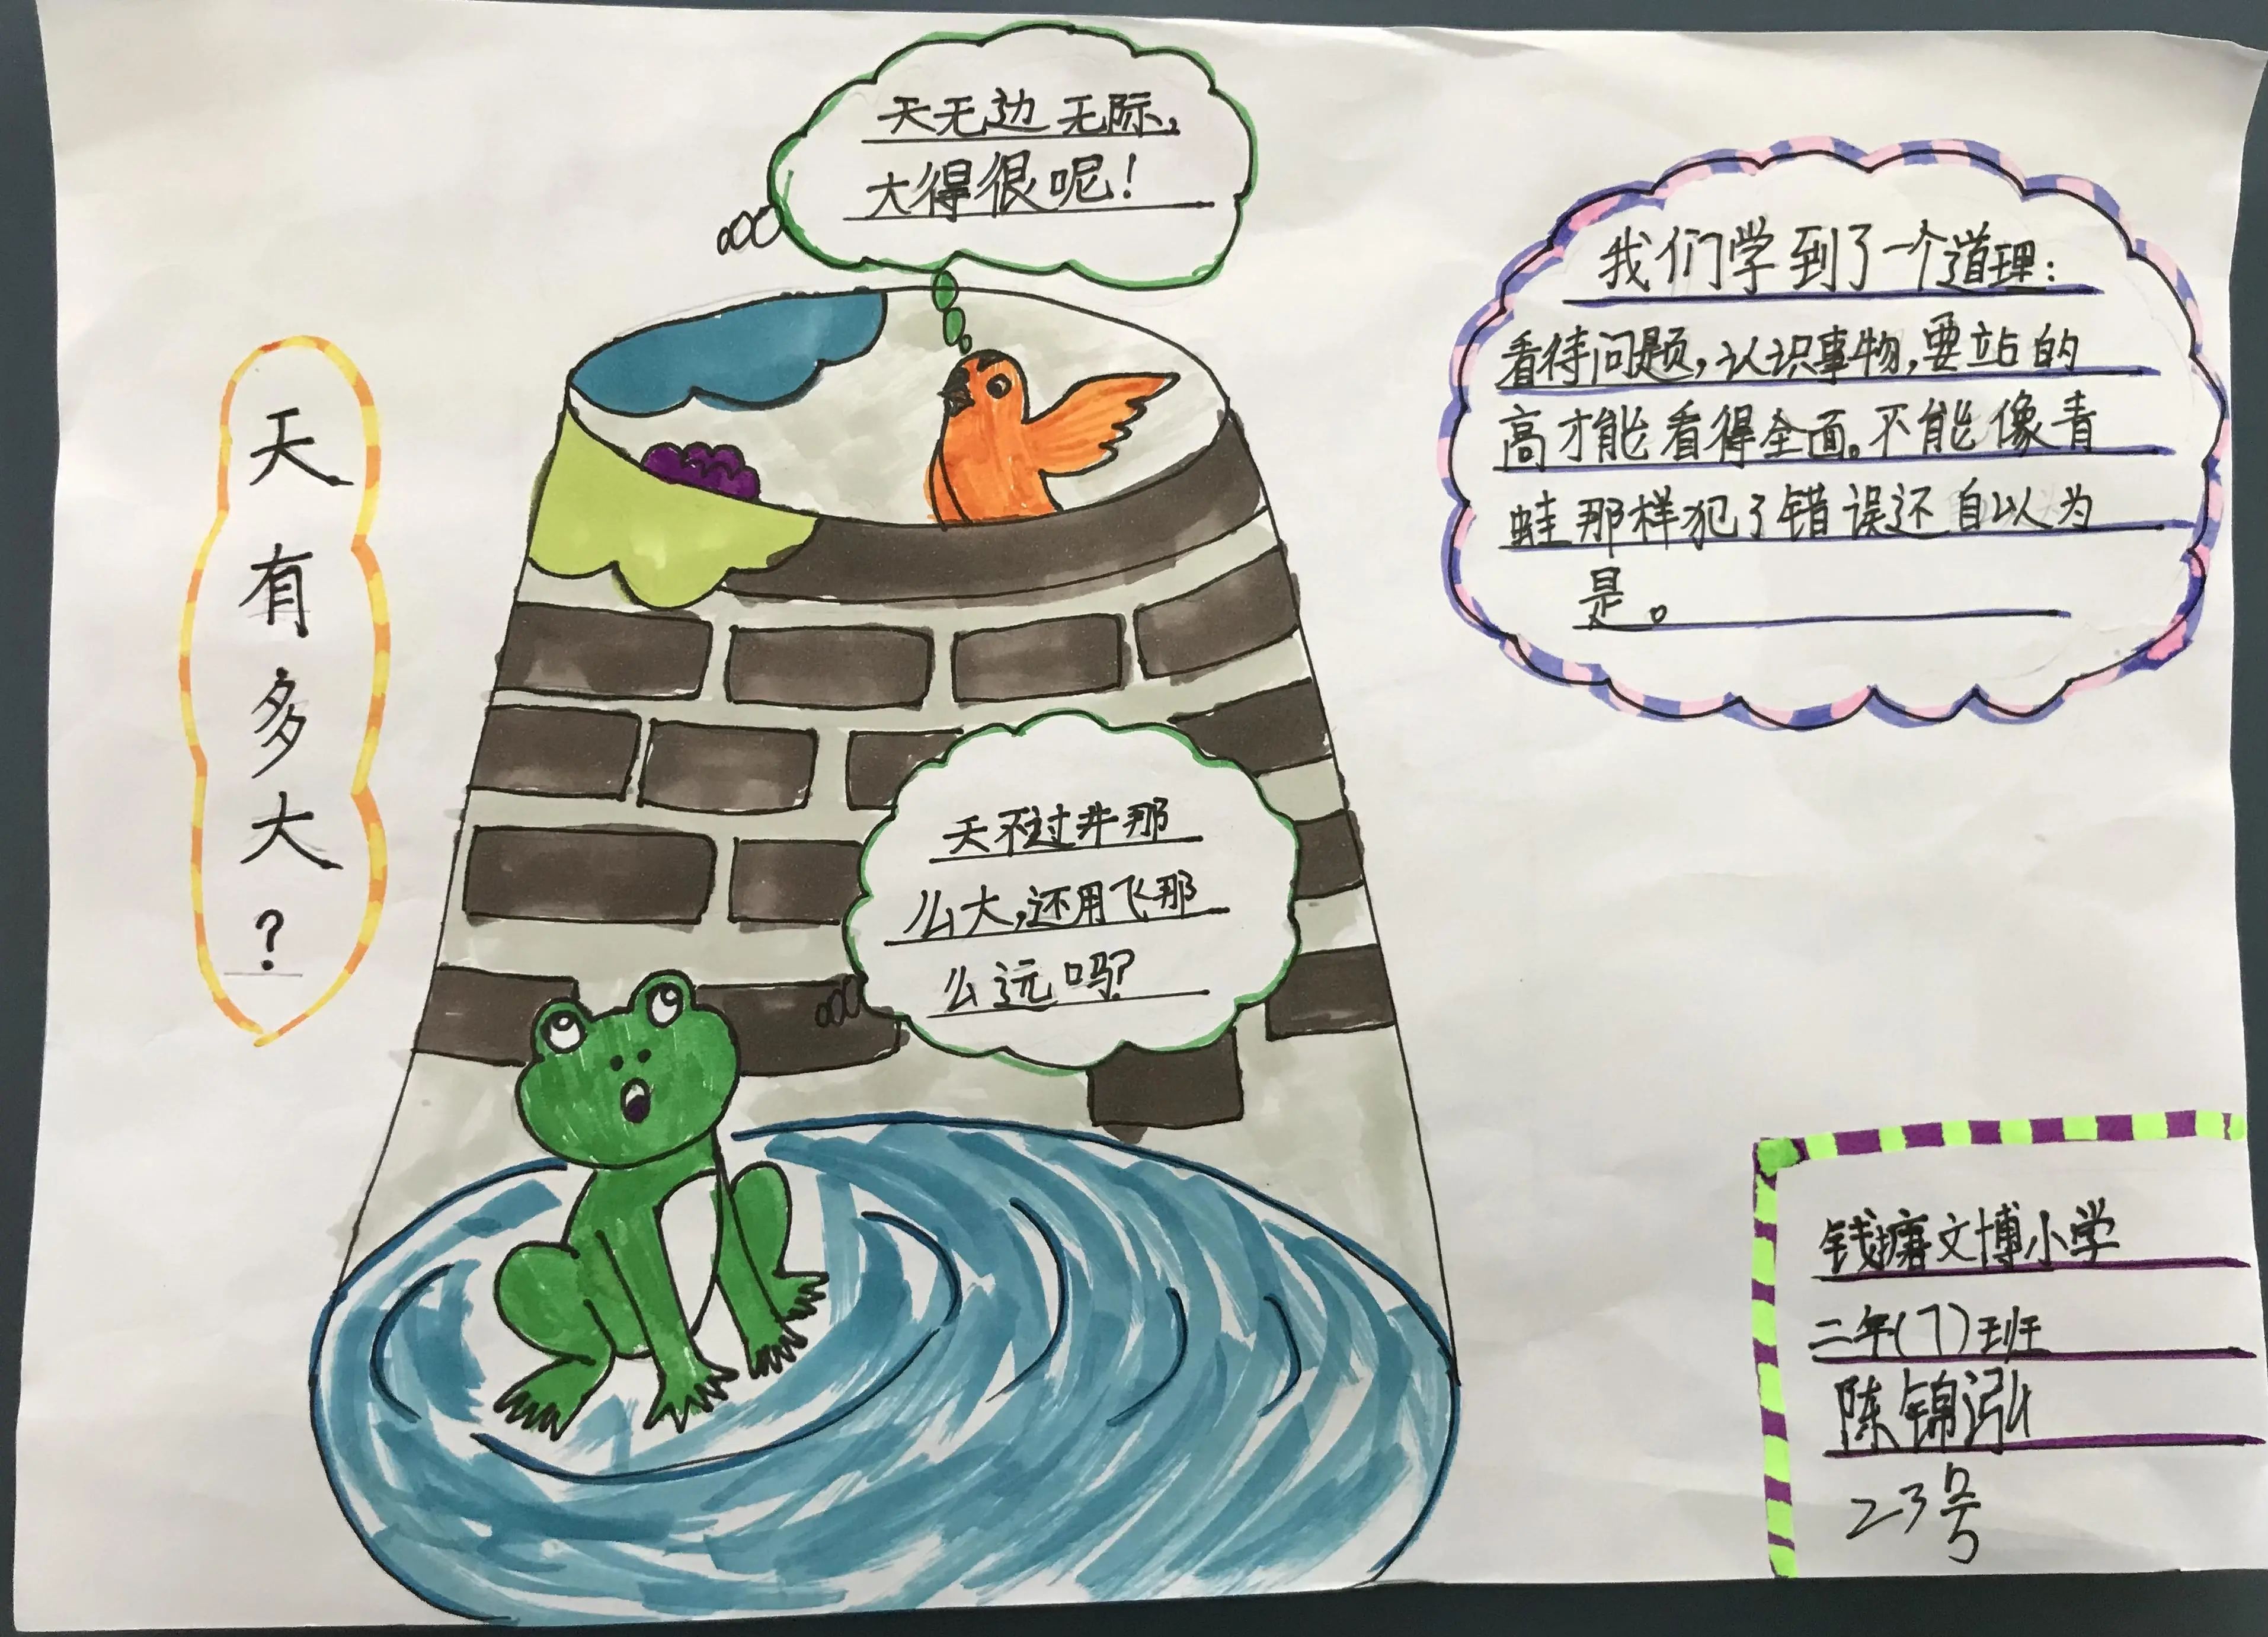 天有多大?
天无边无际,
大得很呢!
天不过井那
么大,还用飞那
么远吗?
我们学到了一个道理:
看待问题,认识事物,要站的
高才能看得全面。不能像青
蛙那样犯了错误还自以为
是。
钱塘文博小学
二年(7)班
陈锦泓
23号